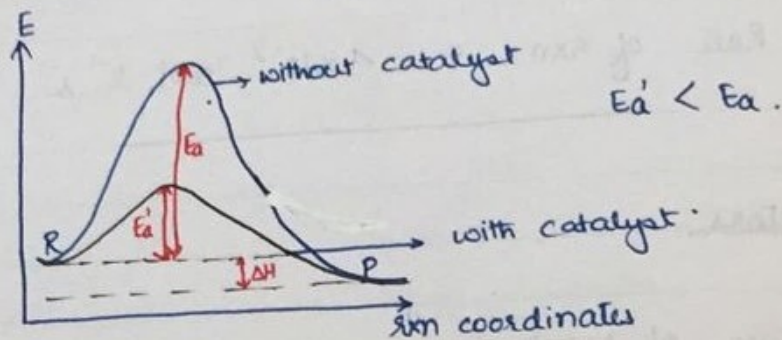 E
without catalyst
Ea' < Ea.
Ea
Ea'
R
with catalyst.
ΔH
P
rxn coordinates